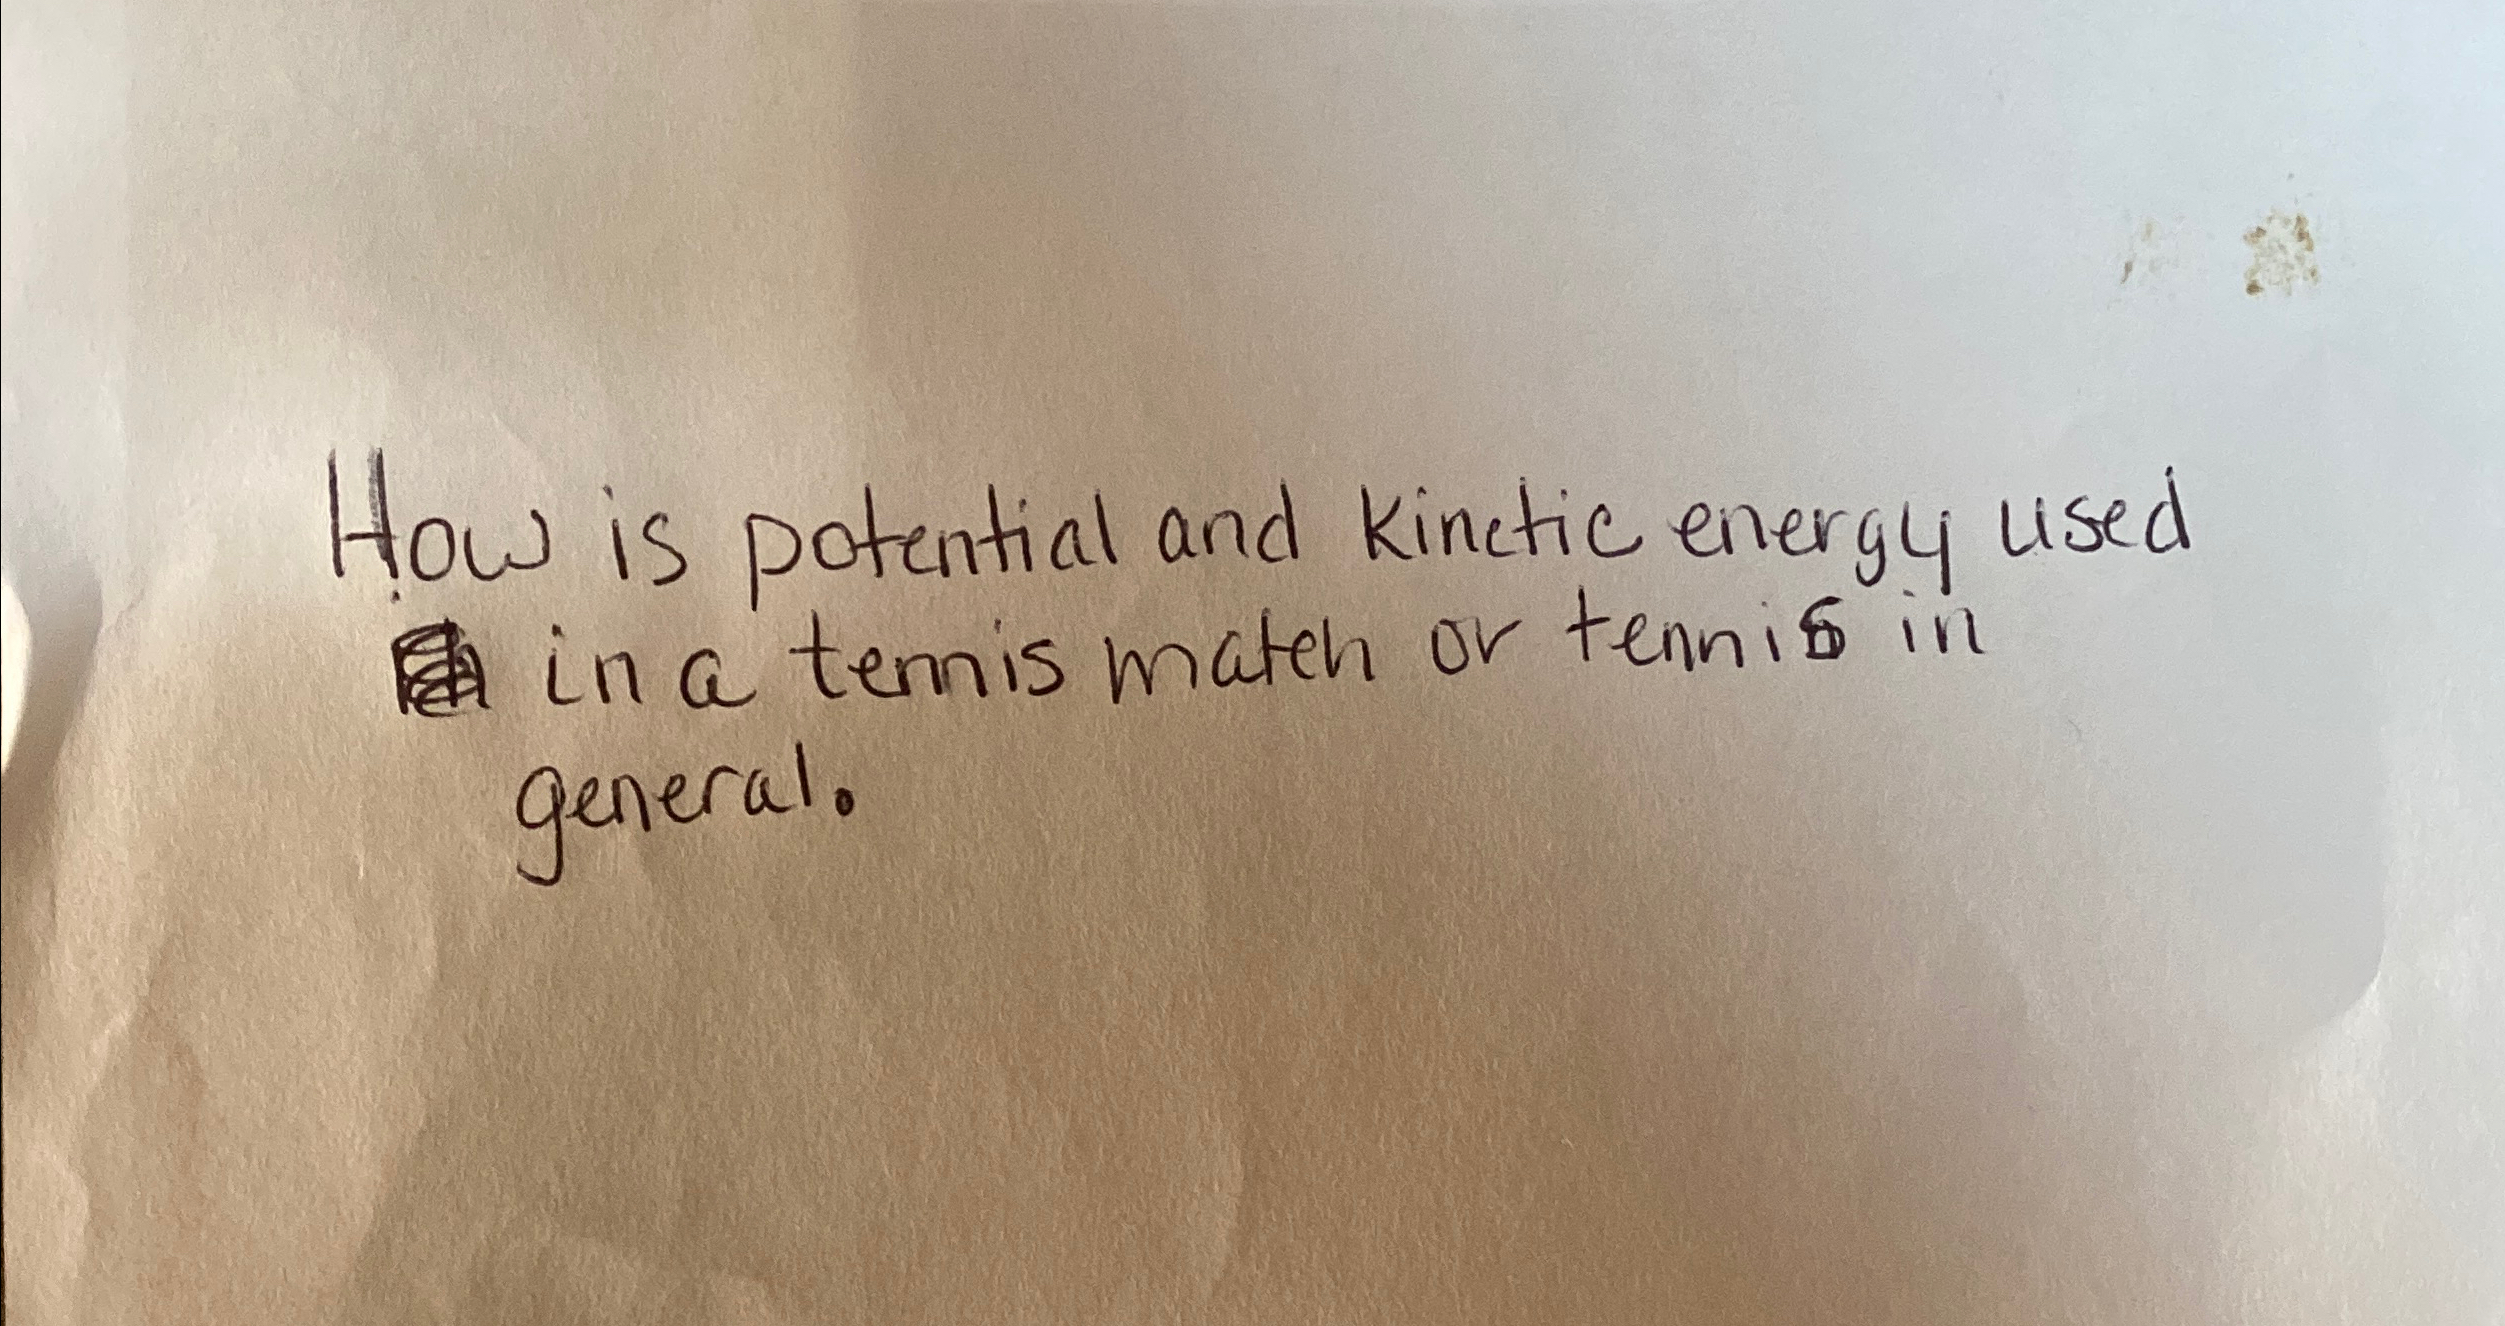 How is potential and kinetic energy used
in a tennis match or tennis in
general.